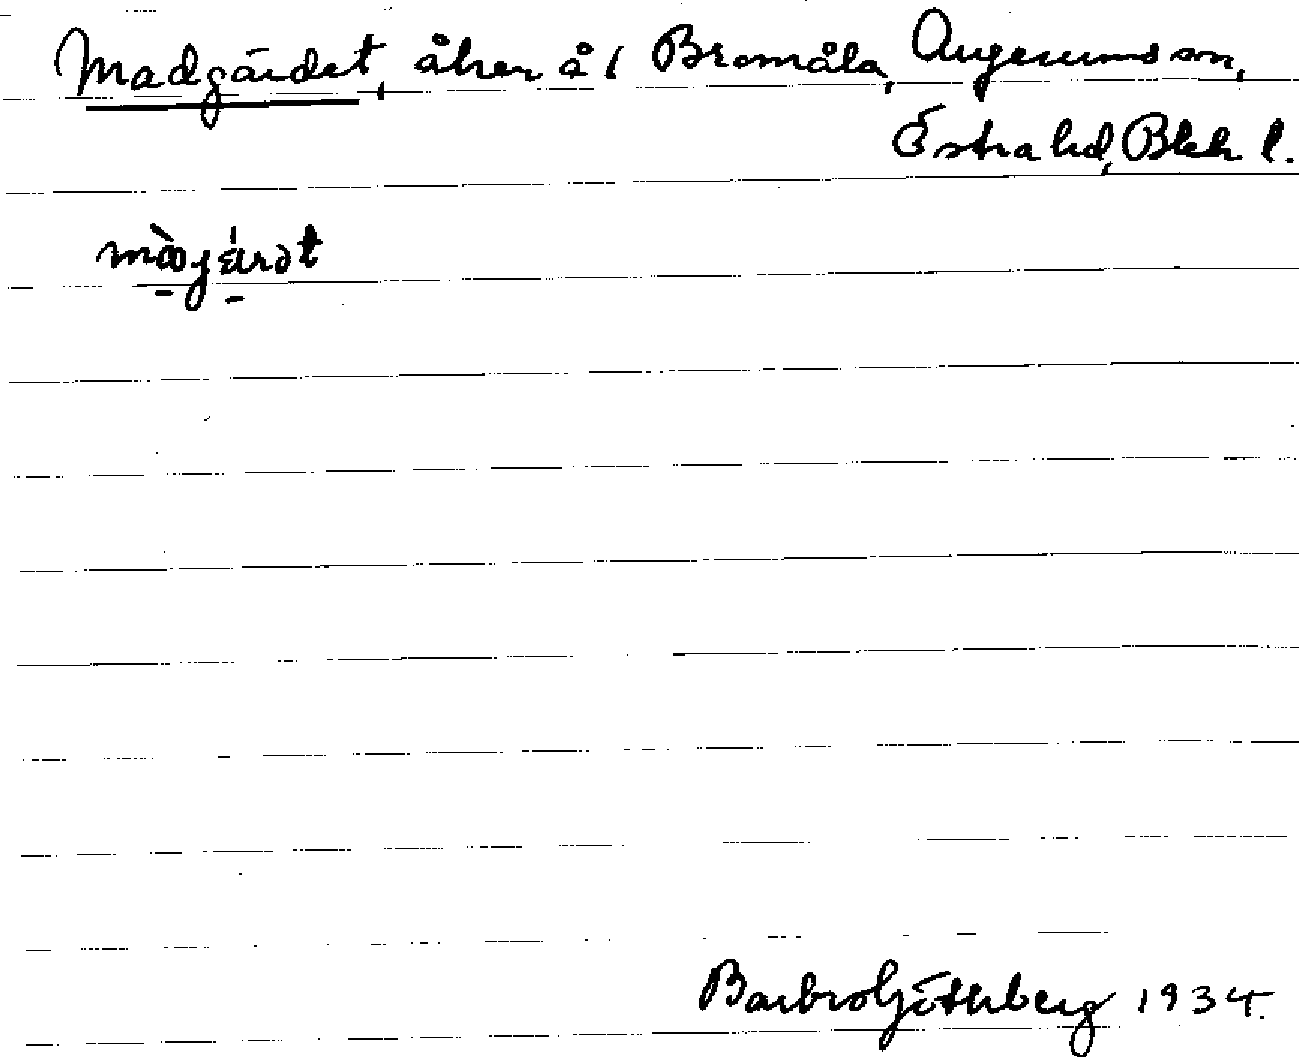 Madgärdet, åker å 1 Bromåla, Augerums sn,
Östra hd, Blek l.
Barbro Götherberg 1934.